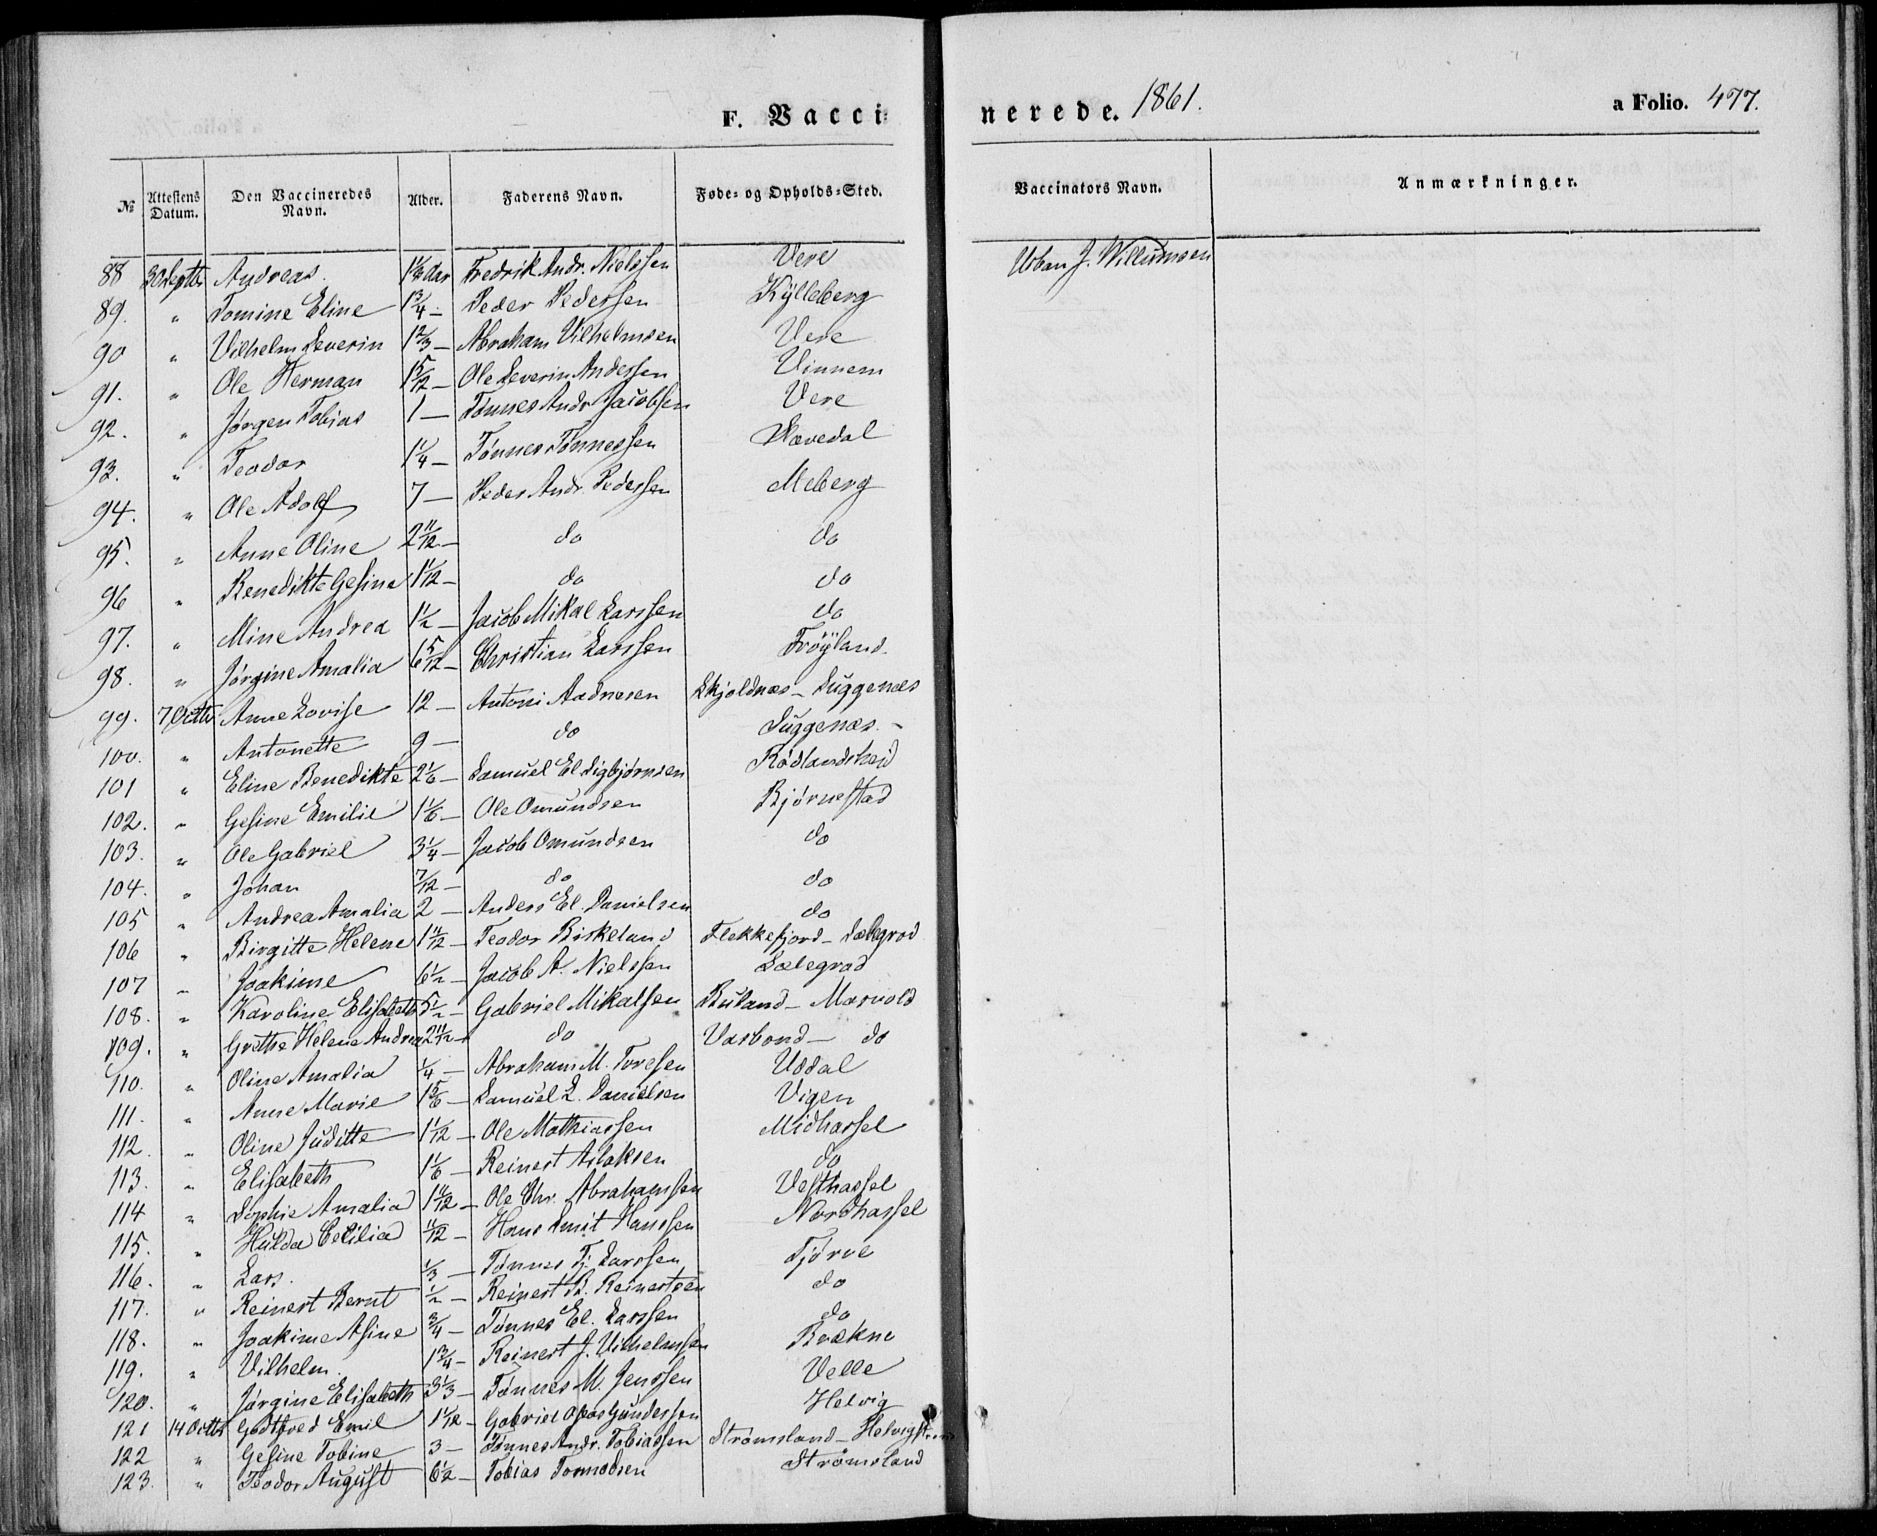 F. Vaccinerede. 1861. a Folio. 477.
No Attestens Datum. Den Vaccineredes Navn. Alder. Faderens Navn. Føde- og Opholds-Sted. Vaccinators Navn. Anmærkninger.
88 30 Septbr Andreas. 1 1/3 Aar Fredrik Andr. Nielssen Vere Urban J. Willumsen
89. " Tomine Eline 1 3/4 — Peder Pedersen Kylleberg
90 " Vilhelm Severin 1 2/3 — Abraham Vilhelmsen Vere
91. " Ole Herman 1 5/12 — Ole Severin Andersen Vinnem
92. " Jørgen Tobias 1 — Tønnes Andr. Jacobsen Vere
93. " Teodor 1 1/4 — Tønnes Tønnessen Slevedal
94. " Ole Adolf 7 — Peder Andr. Pedersen Meberg
95. " Anne Oline 2 11/12 — do do
96 " Benedikte Gesine 1 1/12 — do do
97. " Mine Andrea 1 1/2 — Jacob Mikal Larssen do
98. " Jørgine Amalia 6 5/12 — Christian Larssen Frøyland.
99. 7 Octbr Anne Lovise 12 — Antoni Aadnesen Skjoldnæs – Duggenæs
100. " Antonette 9 — do Duggenæs.
101 " Eline Benedikte 2 1/6 — Samuel El. Sigbjørnsen Rødlandsheid
102. " Gesine Emilie 1 1/6 — Ole Omundsen Bjørnestad
103. " Ole Gabriel 3 1/4 — Jacob Omundsen do
104. " Johan 7/12 — do do
105 " Andrea Amalia 2 — Anders El. Danielsen do
106 " Birgitte Helene 1 11/12 — Teodor Birkeland Flekkefjord – Lælegrod
107 " Joakime 6 1/2 — Jacob A. Nielssen Lælegrod
108. " Karoline Elisabeth 5 1/2 — Gabriel Mikalsen Buland – Marvold
109. " Grethe Helene Andrea 2 11/12 — do Varbond – do
110. " Oline Amalia 1/4 — Abraham M. Toresen Uddal
111. " Anne Marie 1 5/6 — Samuel L. Danielsen Vigen
112. " Oline Juditte 1 1/12 — Ole Mathiassen Midhassel
113. " Elisabeth 1 1/6 — Reinert Aslaksen do
114 " Sophie Amalia 1 11/12 — Ole Chr. Abrahamsen Vesthassel
115. " Hulda Cecilia 11/12 — Hans Smit Hanssen Nordhassel
116. " Lars. 1/3 — Tønnes Tj. Larssen Tjørve
117. " Reinert Bernt 1/2 — Reinert B. Reinertsen do
118. " Joakime Asine 3/4 — Tønnes El. Larssen do
119. " Vilhelm. 1 3/4 — Reinert J. Vilhelmsen Brækne
120. " Jørgine Elisabeth 3 1/3 — Tønnes M. Jenssen Velle
121 14 Octbr Godtfred Emil 1 1/12 — Gabriel Gundersen Helvig
122 " Gesine Tobine 3 — Tønnes Andr. Tobiassen Strømsland – Helvig
123. " Teodor August 6 1/2 — Tobias Tormodsen Strømsland